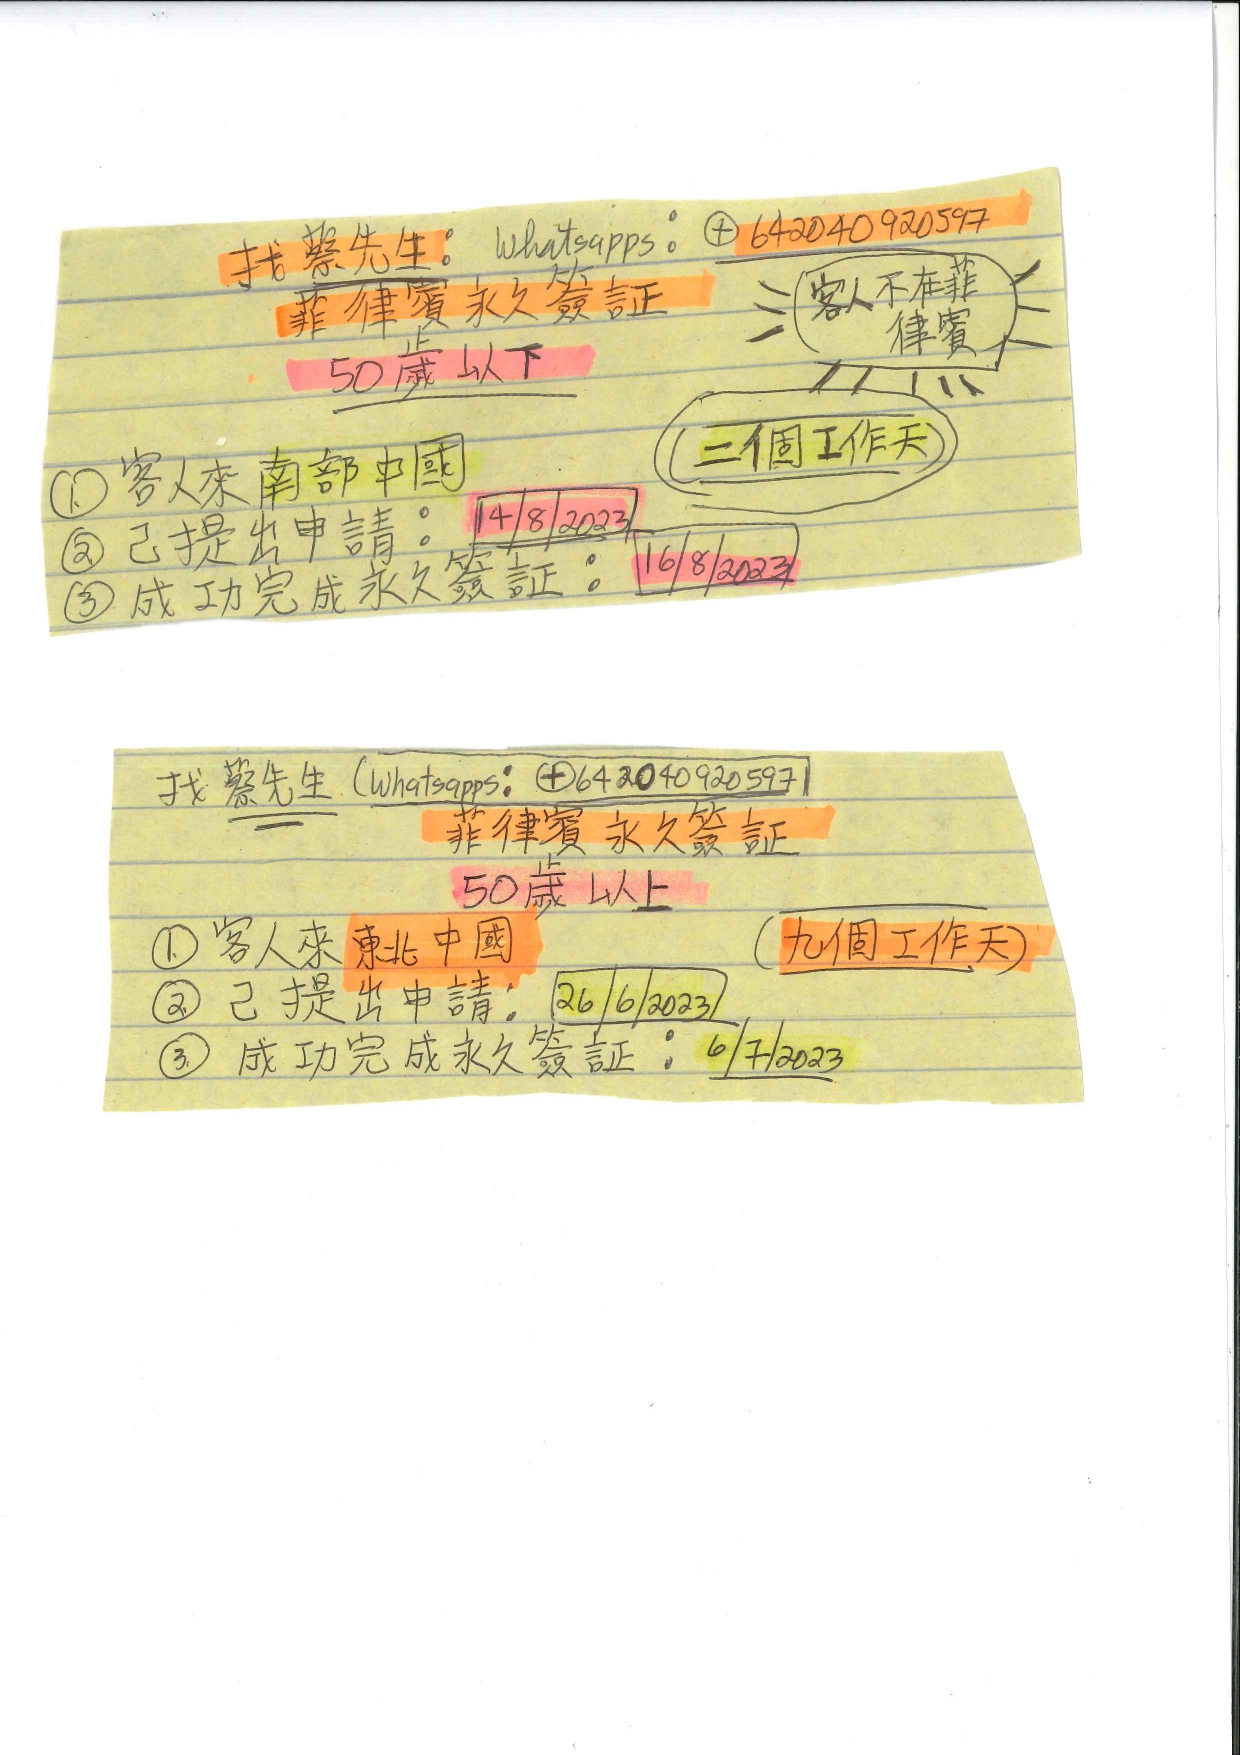 找蔡先生: Whatsapps: +642040920597
菲律賓永久簽証
客人不在菲
律賓
50歲以下
(三個工作天)
① 客人來南部中國
② 己提出申請: 14/8/2023
③ 成功完成永久簽証: 16/8/2023
找蔡先生 (Whatsapps: +642040920597
菲律賓永久簽証
50歲以上
① 客人來東北中國 (九個工作天)
② 己提出申請: 26/6/2023
③ 成功完成永久簽証: 6/7/2023